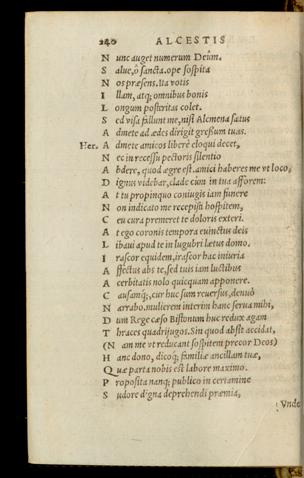 240 ALCESTIS
N unc auget numerum Deûm.
S alue, ô sancta. ope sospita
N os præsens. Ita votis
I llam, atq; omnibus bonis
L ongum posteritas colet.
S ed visa fallunt me, nisi Alcmena satus
A dmete ad ædes dirigit gressum tuas.
Her. A dmete amicos liberè eloqui decet,
N ec in recessu pectoris silentio
A bdere, quod ægre est. amici haberes me vt loco,
D ignus videbar, clade cùm in tua afforem:
A t tu propinquo coniugis iam funere
N on indicato me recepisti hospitem,
C eu cura premeret te doloris exteri.
A t ego coronis tempora euinctus deis
L ibaui apud te in lugubri lætus domo.
I rascor equidem, irascor hac iniuria
A ffectus abs te, sed tuis iam luctibus
A cerbitatis nolo quicquam apponere.
C ausamq;, cur huc sum reuersus, denuò
N arrabo. mulierem interim hanc serua mihi,
D um Rege cæso Bistonum huc redux agam
T hraces quadrijugos. Sin quod absit accidat,
(N am me vt reducant sospitem precor Deos)
H anc dono, dicoq; familiæ ancillam tuæ,
Q uæ parta nobis est labore maximo.
P roposita nanq; publico in certamine
S udore digna deprehendi præmia,
Vnde